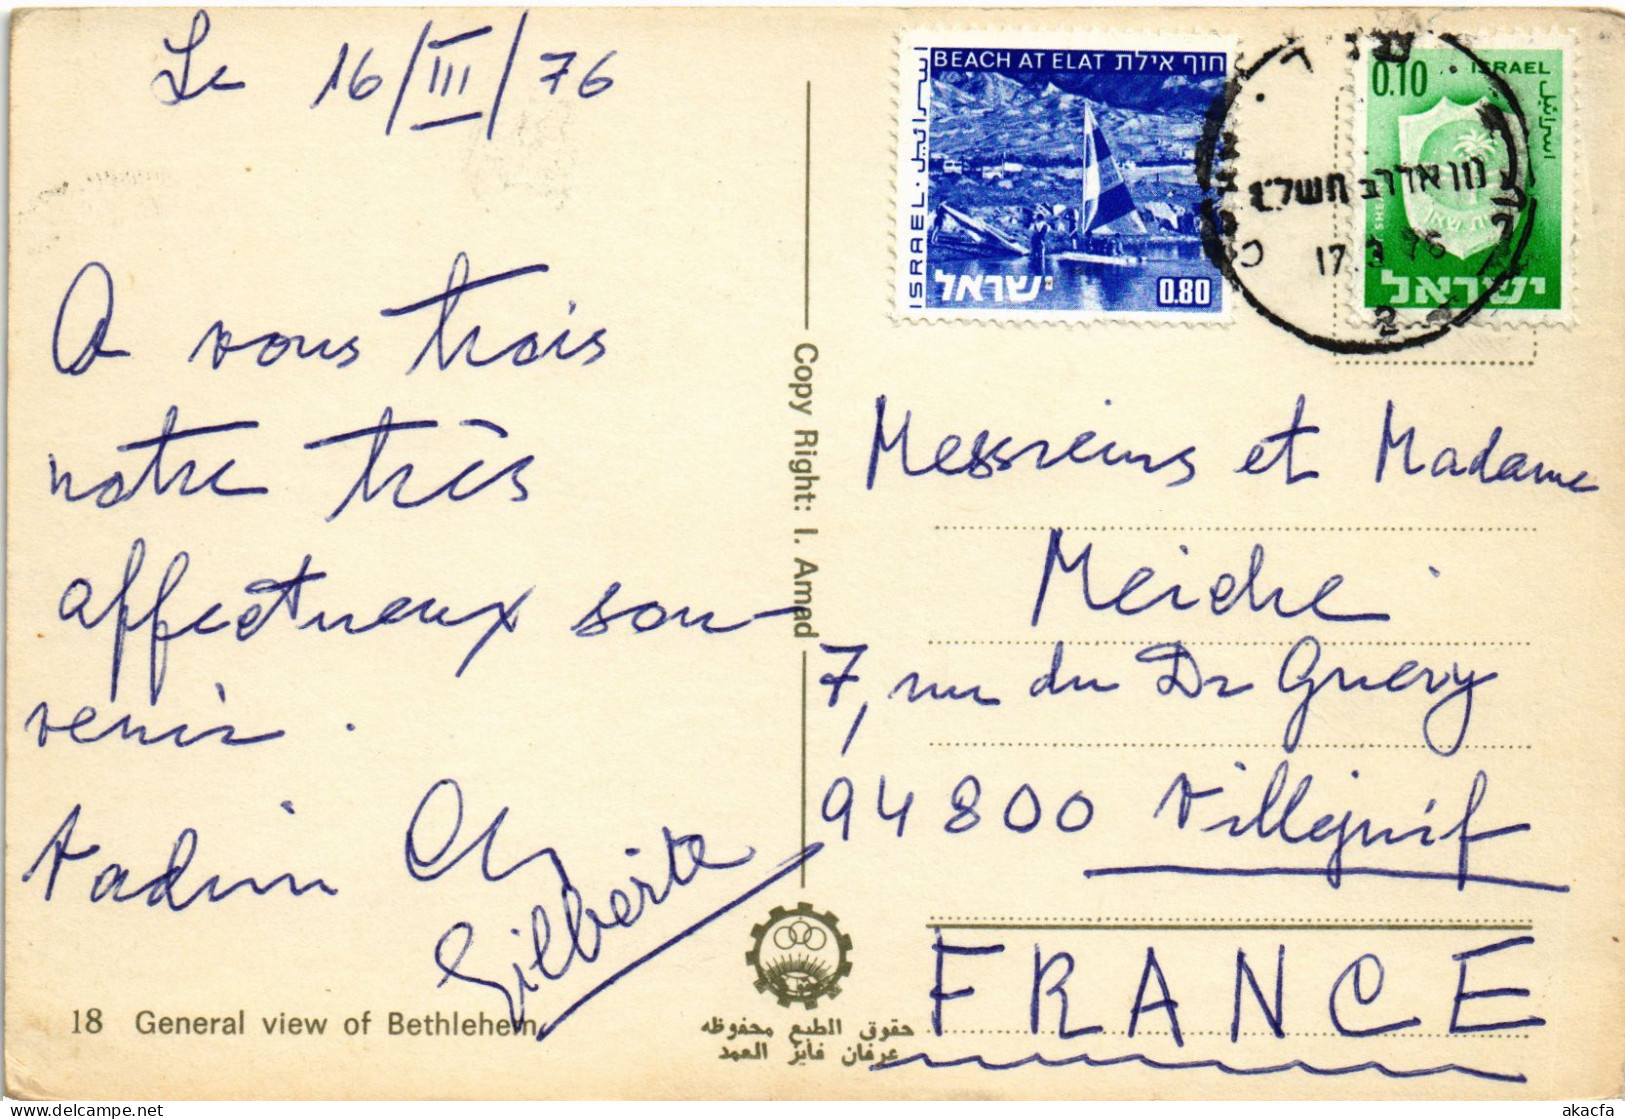 Le 16/III/76
A vous trois
notre très
affectueux sou-
venir.
Vadim
Gilberte
18 General view of Bethlehem
Copy Right: I. Amad
حقوق الطبع محفوظه
عرفان فايز العمد
BEACH AT ELAT חוף אילת
ISRAEL اسرائيل
ישראל 0.80
0.10 ISRAEL
اسرائيل
ישראל
17.3 76
2
Messieurs et Madame
Meiche
7, rue du Dr Query
94800 Villejuif
FRANCE
akacfa